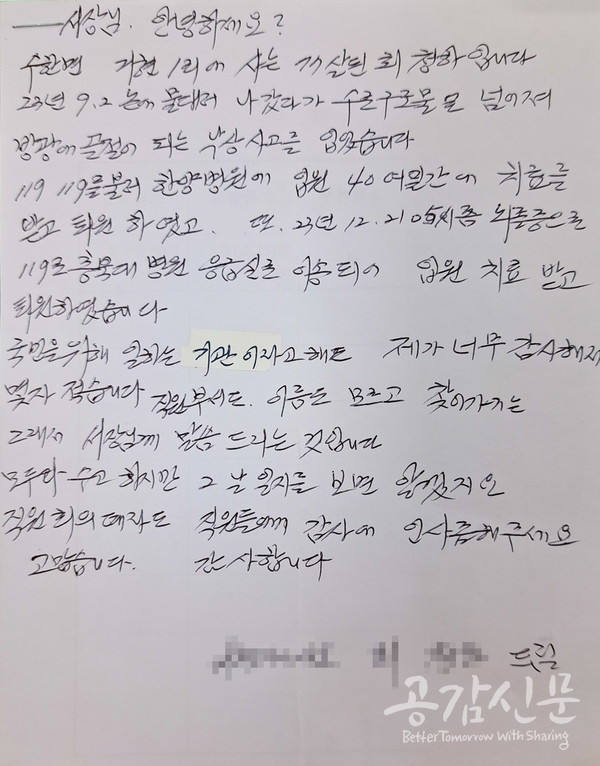 서장님. 안녕하세요?
수한면 거현1리에 사는 77살된 최 청하 입니다
23년 9.2 논에 물대러 나갔다가 수로구조물로 넘어져
방광에 골절이 되는 낙상사고를 입었습니다
119 119를불러 한양병원에 입원 40여일간에 치료를
받고 퇴원 하였고. 또. 23년 12.21 05시쯤 뇌졸증으로
119로 충북대 병원 응급실로 이송되어 입원 치료 받고
퇴원하였습니다
국민을위해 일하는 기관이라고해도 제가 너무 감사해서
몇자 적습니다 직원부서도. 이름도 모르고 찾아가기는
그래서 서장님께 말씀 드리는 것입니다
모두다 수고 하지만 그 날 일지를 보면 알겠지요
직원 회의때라도 직원들에게 감사에 인사좀해주세요
고맙습니다. 감사합니다
드림
공감신문
Better Tomorrow With Sharing